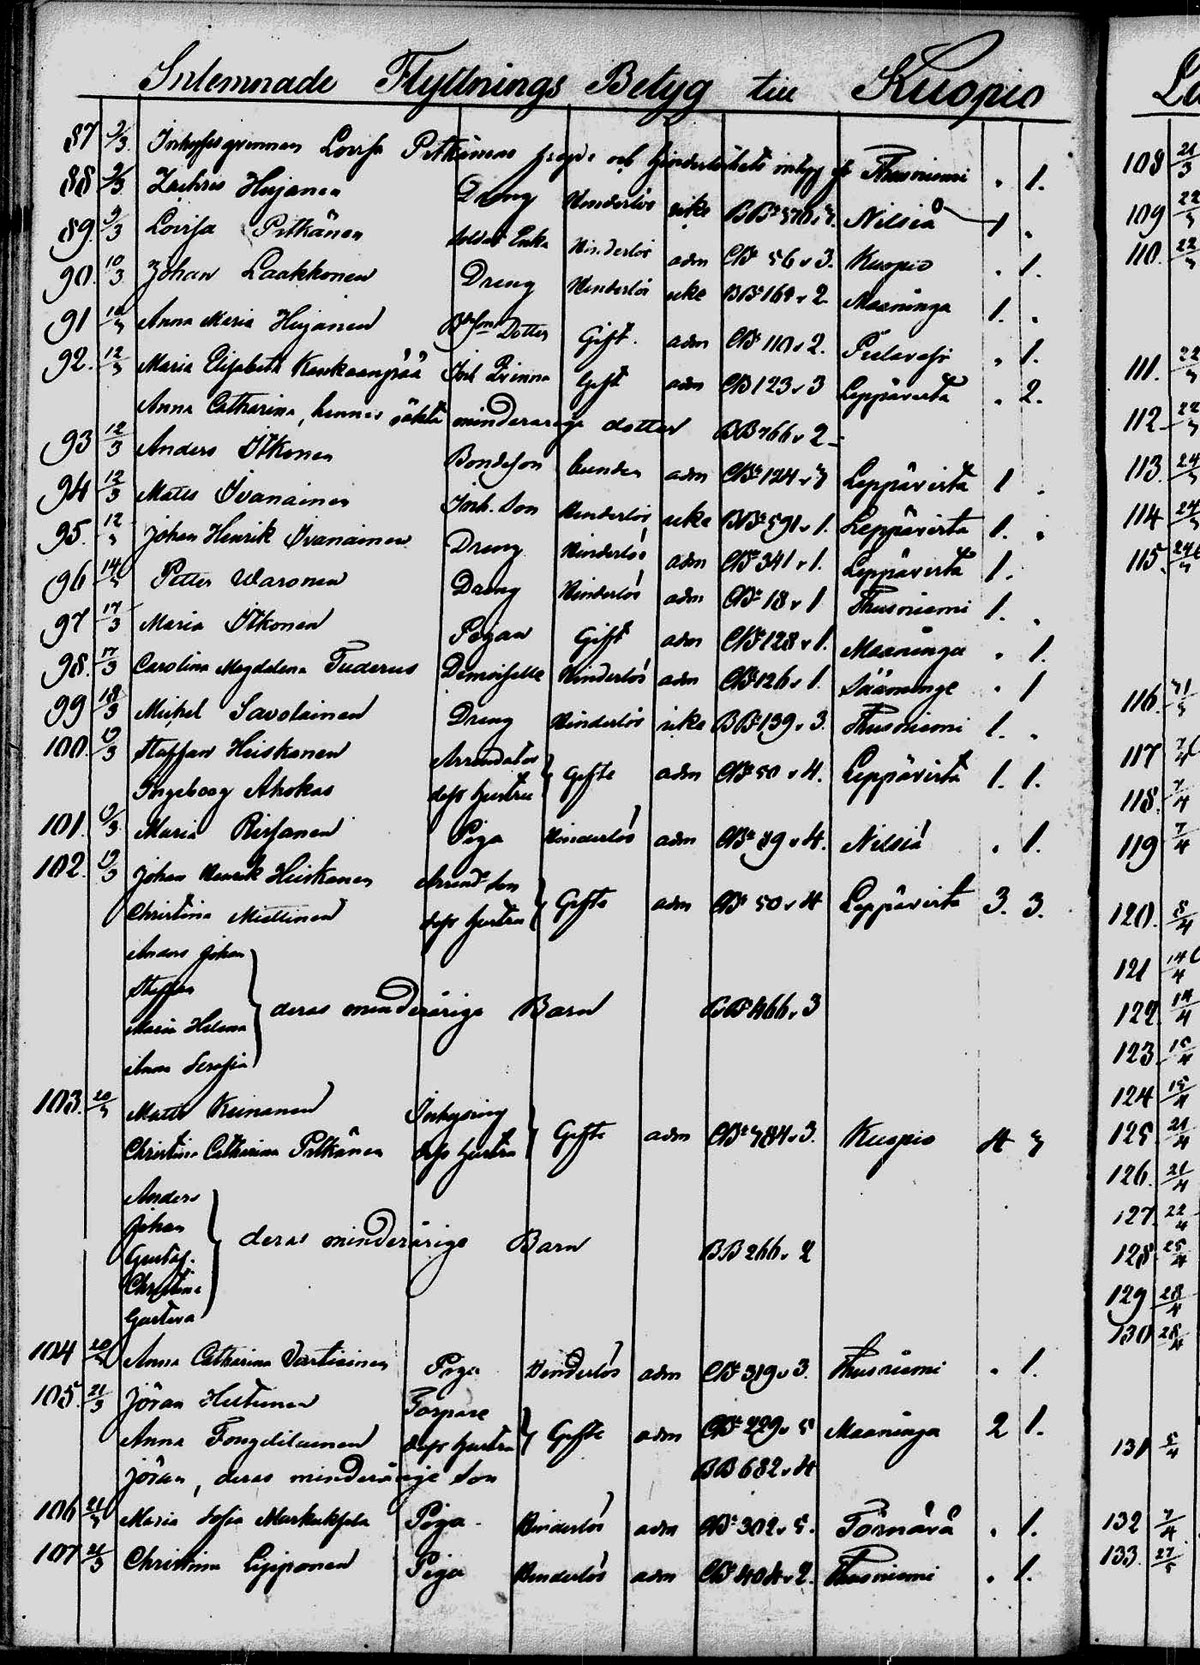 Inlemnade Flyttnings Betyg till Kuopio
87 2/3 Lovisa Pitkänens Thusniemi . 1.
88 Zachris Hujanen Dreng Hinderlös icke BB 570 v 3. Nilsiä 1 .
89. Lovisa Pitkänen Soldat Enka Hinderlös adm CB 56 v 3. Kuopio . 1.
90. 10/3 Johan Laakkonen Dreng Hinderlös icke BB 169 v 2 Maaninga 1. .
91 Anna Maria Hujanen Dotter Gift. adm CB 110 v 2. . 1.
92. 12/3 Maria Elisabeth Kankaanpää Inh Qvinna Gift adm CB 123 v 3 Leppävirta . 2.
Anna Catharina, hennes äkta minderåriga dotter BB 766 v 2
93 12/3 Anders Itkonen Bondeson bunden adm CB 124 v 3 Leppävirta 1 .
94 12/3 Matts Ivanainen Inh. Son Hinderlös icke BB 591 v 1. Leppävirta 1. .
95. 12/3 Johan Henrik Ivanainen Dreng Hinderlös adm CB 341 v 1. Leppävirta 1.
96 14/3 Petter Waronen Dreng Hinderlös adm CB 18 v 1 Thusniemi 1. .
97 17/3 Maria Itkonen Pigan Gift adm CB 128 v 1. Maaninga . 1.
98. 17/3 Carolina Magdalena Tuderus Demoiselle Hinderlös adm CB 126 v 1. Sääminge . 1
99 18/3 Mickel Savolainen Dreng Hinderlös icke BB 139 v 3. Thusniemi 1. .
100. 19/3 Staffan Heiskanen Arrendator
Gifte adm CB 50 v 4. Leppävirta 1. 1.
Ingeborg Ahokas dess hustru
101. Maria Rissanen Piga Hinderlös adm CB 89 v 4. Nilsiä . 1.
102. 19/3 Johan Henrik Heiskanen Arrend. Son
Gifte adm CB 50 v 4 Leppävirta 3. 3.
Christina Miettinen dess hustru
Anders Johan
Staffan
deras minderårige Barn BB 466 v 3
Maria Helena
Anna Serafia
103. 20/3 Matts Keinanen Inhysing
Christina Catharina Pitkänen dess hustru Gifte adm CB 784 v 3. Kuopio 4 3
Anders
Johan
deras minderårige Barn BB 266 v 2
Gustaf.
Christina
Gustava
104 20/3 Anna Catharina Vartiainen Piga Hinderlös adm CB 319 v 3. Thusniemi . 1.
105. 21/3 Jöran Torpare
Anna dess hustru Gifte adm CB 229 v 5 Maaninga 2 1.
Jöran, deras minderårige Son BB 682 v 4
106 21/3 Maria Sofia Piga Hinderlös adm CB 302 v 5. Törnävä . 1.
107. 21/3 Christina Lipponen Piga Hinderlös adm CB 404 v 2. Thusniemi . 1.
108 21/3
109 22/3
110. 22/3
111. 22/3
112. 22/3
113. 24/3
114 24/3
115. 24/3
116. 31/3
117 7/4
118. 7/4
119 7/4
120. 8/4
121 14/4
122. 14/4
123 15/4
124 15/4
125 21/4
126. 21/4
127. 22/4
128. 25/4
129 28/4
130 28/4
131 5/4
132 7/4
133. 27/5